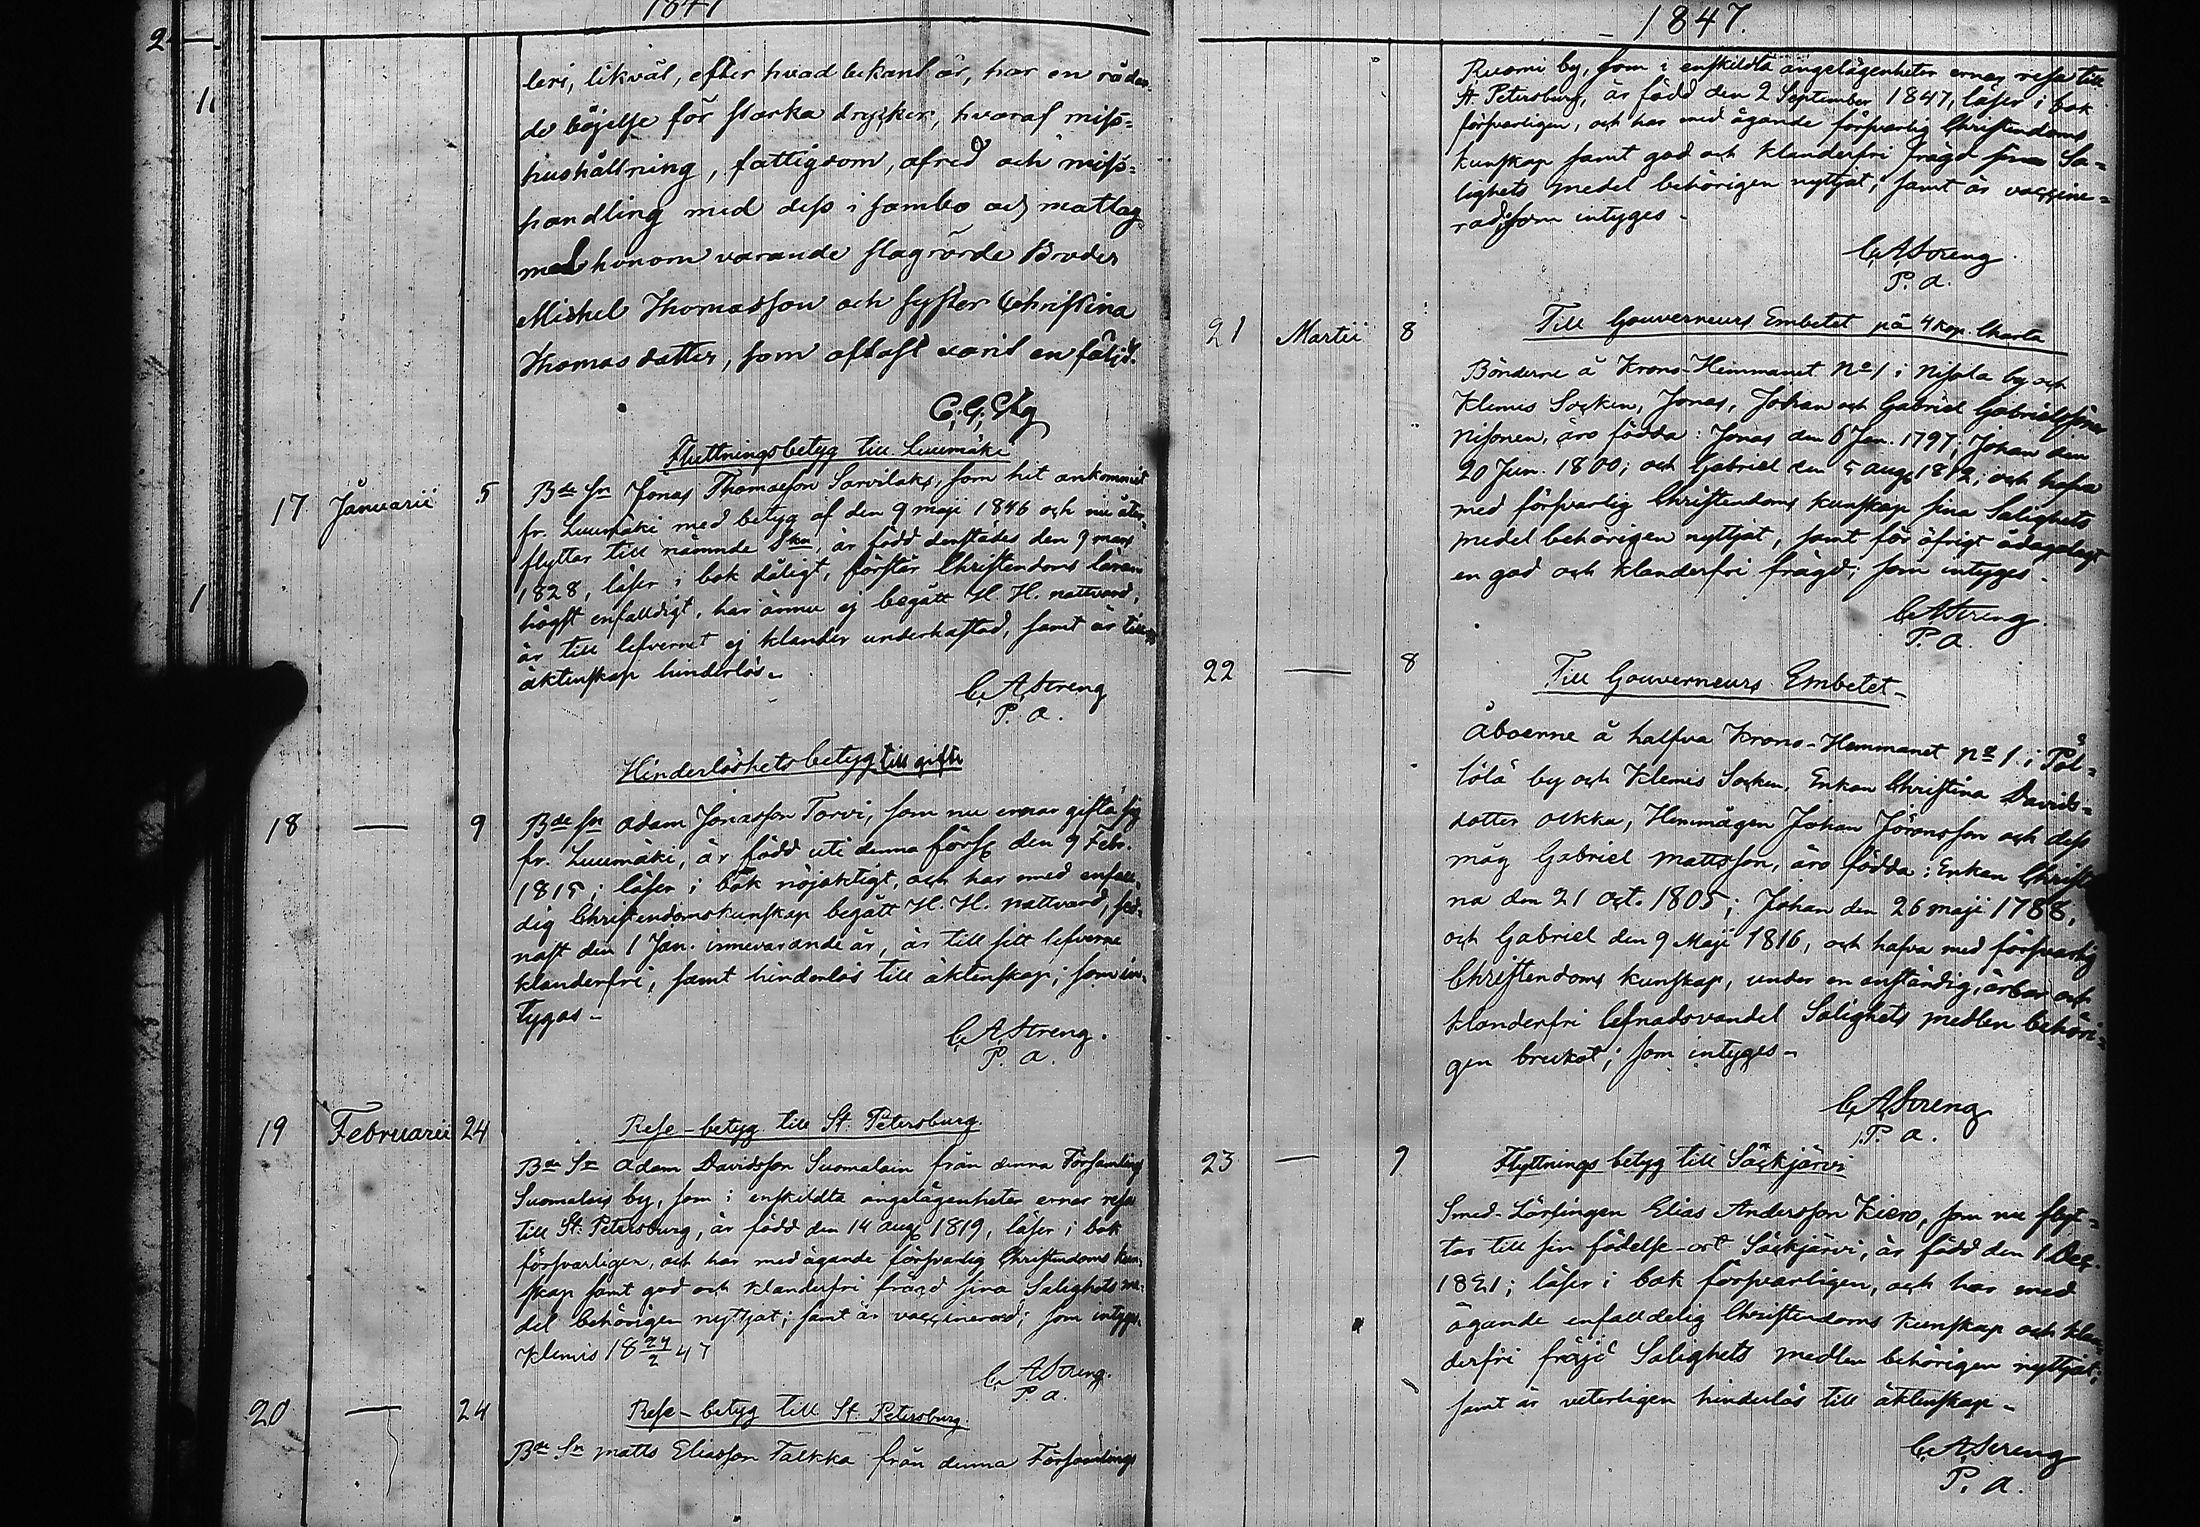 1847
2
11
1
leri, likväl, efter hvad bekant är, har en rådan-
de böjelse för starka drycker, hvaraf miss=
hushållning, fattigdom, ofred och miss=
handling med dess i sambo och matlag
med honom varande slagrörde Broder
Michel Thomasson och syster Christina
Thomasdotter, som oftast varit en följd.
Flyttningsbetyg till Luumäki
17 Januarii 5 Bde Sn Jonas Thomasson Sarvilaks, som hit ankommit
fr. Luumäki med betyg af den 9 maji 1846 och nu åter-
flyttar till nämnde Skn, är född derstädes den 9 mars
1828, läser i bok dåligt, förstår Christendoms läran
högst enfalldigt, har ännu ej begått H. H. nattvard,
är till lefvernet ej klander underkastad, samt är till
äktenskap hinderlös.
C. A. Streng
P. a.
Hinderlöshetsbetyg till gifte
18 — 9 Bde Sn Adam Jonasson Torvi, som nu ernar gifta sig
fr. Luumäki, är född uti denna förs den 9 Febr.
1815; läser i bok nöjaktigt, och har med enfall-
dig Christendomskunskap begått H. H. nattvard, sed-
nast den 1 Jan. innevarande år, är till sitt lefverne
klanderfri, samt hinderlös till äktenskap; som in-
tygas -
C. A. Streng.
P. a.
19 Februarii 24 Rese-betyg till St. Petersburg.
Bde Sn Adam Davidsson Suomalain från denna Församlings
Suomalais by, som i enskildta angelägenheter ernar resa
till St. Petersburg, är född den 14 aug 1819, läser i bok
försvarligen, och har med ägande försvarlig Christendoms kun-
skap samt god och klanderfri frägd sina Salighets me-
del behörigen nyttjat; samt är vaccinerad; som intygas.
Klemis 18 24/2 47
C. A. Streng.
P. a.
20 — 24 Rese-betyg till St. Petersburg.
Bde Sn Matts Eliasson Talkka från denna Församlings
1847.
Ruomi by, som i enskildta angelägenheter ernar resa till
St. Petersburg, är född den 2 September 1847, läser i bok
försvarligen, och har med ägande försvarlig Christendoms
kunskap samt god och klanderfri frägd sina Sa=
lighets medel behörigen nyttjat; samt är vaccine=
rad; som intyges -
C. A. Streng
P. a.
21 Martii 8 Till Gouverneurs Embetet på 4 kop. Charta
Bönderne å Krono-Hemmanet No 1 i Nisola by och
Klemis Socken, Jonas, Johan och Gabriel Gabrielssöner
Nisonen, äro födda: Jonas den 6 Jan. 1797; Johan den
20 Jun. 1800; och Gabriel den 5 aug 1812; och hafva
med försvarlig Christendoms kunskap sina Salighets
medel behörigen nyttjat, samt för öfrigt ådagalagt
en god och klanderfri frägd; som intyges -
C. A. Streng.
P. a.
22 — 8 Till Gouverneurs Embetet -
Åboerne å halfva Krono-Hemmanet No 1 i Pöl=
lölä by och Klemis Socken, Enkan Christina Davids=
dotter Ockka, Hemmågen Johan Jöransson och dess
måg Gabriel Mattsson, äro födda: Enkan Christi
na den 21 Oct. 1805; Johan den 26 maji 1788,
och Gabriel den 9 Maji 1816, och hafva med försvarlig
Christendoms kunskap, under en anständig, ärbar och
klanderfri lefnadsvandel Salighets medlen behöri=
gen brukat; som intyges -
C. A. Streng
P. a.
23 — 9 Flyttnings betyg till Säckjärvi
Smed-Lärlingen Elias Andersson Kiero, som nu flyt=
tar till sin födelse-ort Säckjärvi, är född den 1 Dec.
1821; läser i bok försvarligen, och har med
ägande enfalldelig Christendoms kunskap och klan-
derfri fräjd Salighets medlen behörigen nyttjat;
samt är veterligen hinderlös till äktenskap -
C. A. Streng
P. a.